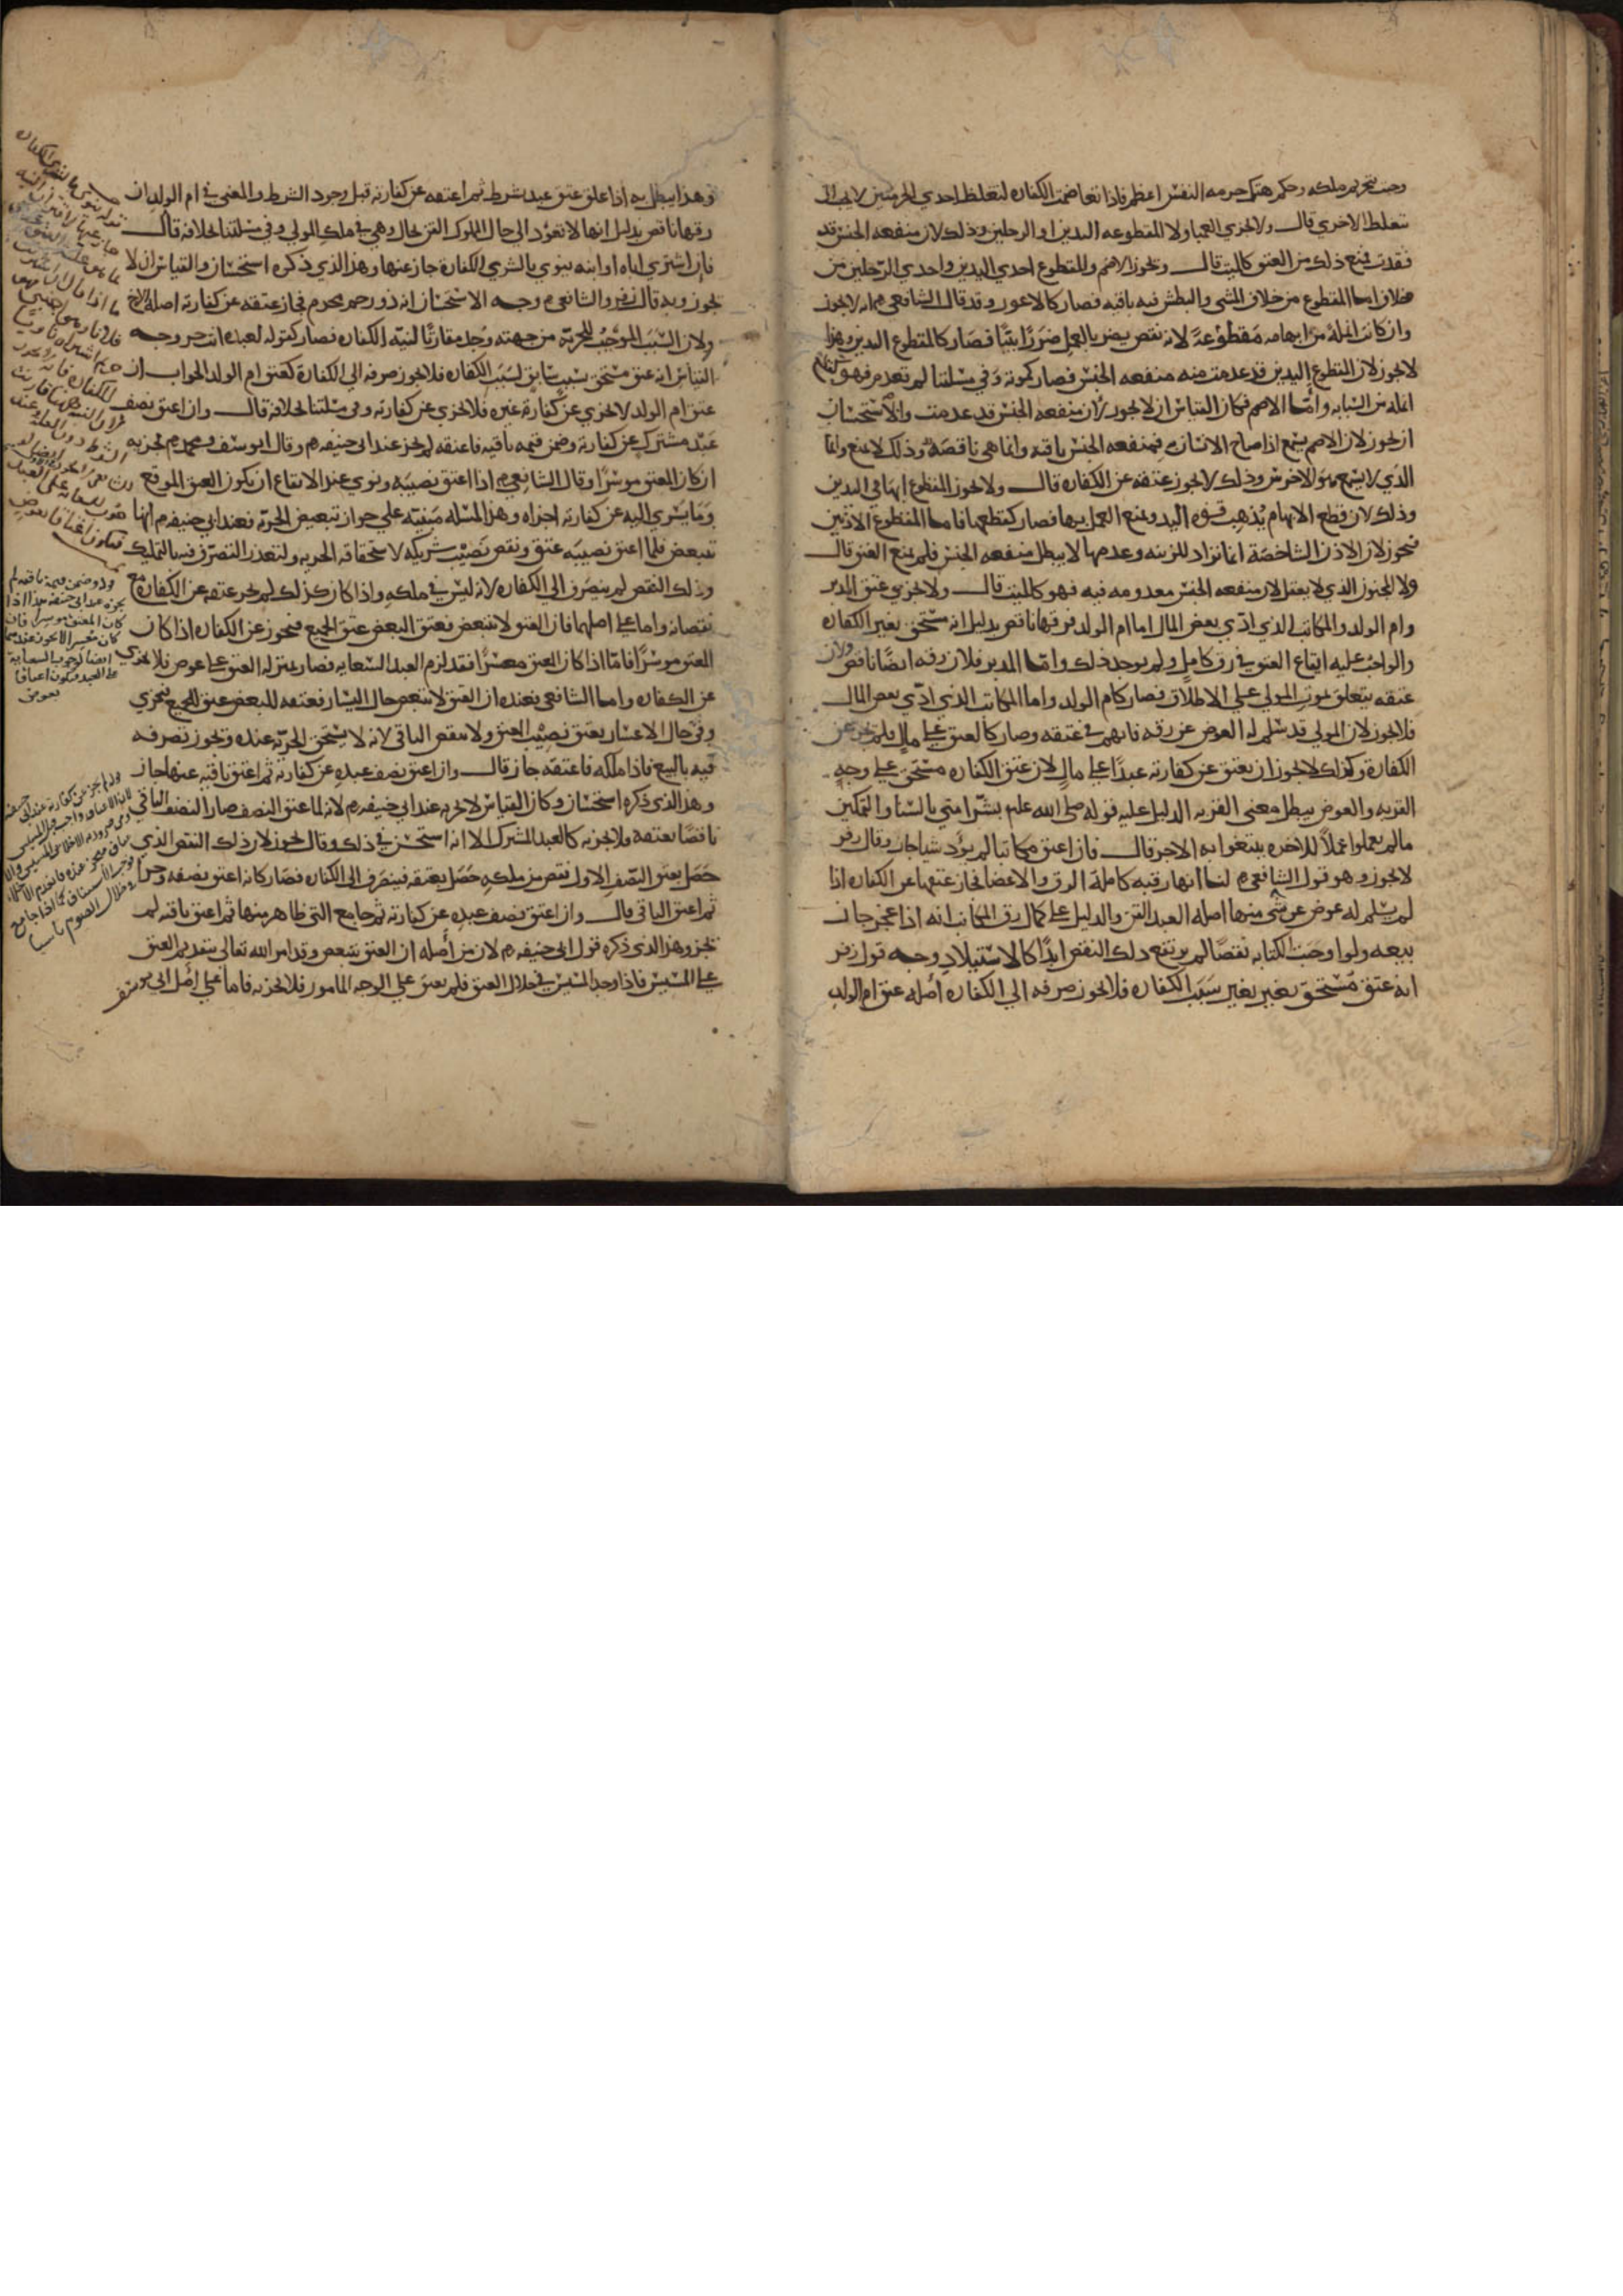 وجب بتحريم ملكه وحكم هتك حرمه النفس اعظم فاذا تعاضمت الكفاره لتغلظ احدي الحرمتين لا يجب الى
تغلظ الاخري قال ولا يجزي العميا ولا المقطوعه اليدين او الرجلين وذلك لان منفعه الجنس قد
فقدت فمنع ذلك من العتق كالميت قال ويجوز الاصم والمقطوع احدي اليدين واحدي الرجلين من
خلاف اما المقطوع من خلاف المشي والبطش فيه باقيه فصار كالاعور وقد قال الشافعي انه لا يجوز
وان كانت انملة من ابهامه مقطوعة لانه نقص يضر بالعمل ضررا بينا فصار كالمقطوع اليدين وهذا
لا يجوز لان المقطوع اليدين قد عدمت منه منفعه الجنس فصار كموته وفي مسلتنا لم تعدم فهو كقطع
انمله من السبابه واما الاصم فكان القياس ان لا يجوز لان منفعه الجنس قد عدمت والاستحسان
ان يجوز لان الاصم يسمع اذا صاح الانسان به فمنفعه الجنس باقيه وانما هي ناقصة وذلك لا يمنع وانما
الذي لا يسمع هو الاخرس وذلك لا يجوز عتقه عن الكفاره قال ولا يجوز المقطوع ابهامي اليدين
وذلك لان قطع الابهام يذهب قوه اليد ويمنع العمل بها فصار كقطعها فاما المقطوع الاذنين
فيجوز لان الاذن الشاخصة انما تراد للزينه وعدمها لا يبطل منفعه الجنس فلم يمنع العتق قال
ولا المجنون الذي لا يعقل لان منفعه الجنس معدومه فيه فهو كالميت قال ولا يجزي عتق المدبر
وام الولد والمكاتب الذي ادي بعض المال اما ام الولد فرقها ناقص بدليل انه مستحق بغير الكفاره
والواجب عليه ايقاع العتق في رق كامل ولم يوجد ذلك واما المدبر فلان رقه ايضا ناقص ولان
عتقه يتعلق بموت المولي علي الاطلاق فصار كام الولد واما المكاتب الذي ادي بعض المال
فلا يجوز لان المولي قد سلم له العوض عن رقه فاتهم في عتقه وصار كالعتق علي مال فلم يجز عن
الكفارة وكذلك لا يجوز ان يعتق عن كفارته عبدا علي مال لان عتق الكفاره مستحق علي وجه
القربه والعوض يبطل معني القربه الدليل عليه قوله صلى الله عليه بشر امتي بالسنا والتمكين
مالم يعملوا عملا للاخره يبتغوا به الاجر قال فان اعتق مكاتبا لم يؤد شيا جاز وقال زفر
لا يجوز وهو قول الشافعي لنا انها رقبه كاملة الرق والاعضا فجاز عتقها عن الكفاره اذا
لم يسلم له عوض عن شي منها اصله العبد القن والدليل علي كمال رق المكاتب انه اذا عجز جاز
بيعه ولو اوجبت الكتابه نقصا لم يرتفع ذلك النقص ابدا كالاستيلاد وجه قول زفر
انه عتق مستحق بغير بغير سبب الكفاره فلا يجوز صرفه الي الكفاره اصله عتق ام الولد
وهذا يبطل به اذا علق عتق عبد بشرط ثم اعتقه عن كفارته قبل وجود الشرط والمعني في ام الولد ان
رقها ناقص بدليل انها لا تعود الي حال المملوك القن بحال وهي في ملك المولي وفي مسلتنا بخلافه قال
فان اشتري اباه او ابنه ينوي بالشري الكفارة جاز عنها وهذا الذي ذكره استحسان والقياس ان لا
يجوز وبه قال زفر والشافعي وجه الاستحسان انه ذو رحم محرم فجاز عتقه عن كفارته اصله الاخ
ولان السبب الموجب للحرية من جهته وجد مقارنا لنيه الكفاره فصار كقوله لعبده انت حر وجه
القياس انه عتق مستحق بسبب سابق لسبب الكفاره فلا يجوز صرفه الي الكفارة كعتق ام الولد الجواب ان
عتق ام الولد لا يجزي عن كفارة غيره فلا يجزي عن كفارته وفي مسلتنا بخلافه قال وان اعتق نصف
عبد مشترك عن كفارته وضمن قيمه باقيه فاعتقه لم يجز عند ابي حنيفه وقال ابو يوسف ومحمد يجزيه
ان كان المعتق موسرا وقال الشافعي اذا اعتق نصيبه ونوي عند الايقاع ان يكون العتق الموقع
وما يسري اليه عن كفارته اجزاه وهذه المسله مبنيه علي جواز تبعيض الحرية فعند ابي حنيفه انها
تتبعض فلما اعتق نصيبه عتق ونقص نصيب شريكه لاستحقاقه الحريه ولتعذر التصرف فيه بالتمليك
وذلك النقص لم ينصرف الي الكفاره لانه ليس في ملكه واذا كان كذلك لم يجز عتقه عن الكفاره مع
نقصانه واما علي اصلهما فان العتق لا يتبعض فعتق البعض عتق الجميع فيجوز عن الكفاره اذا كان
المعتق موسرا فاما اذا كان المعتق معسرا فقد لزم العبد السعايه فصار بمنزله العتق علي عوض فلا يجزي
عن الكفاره واما الشافعي فعنده ان العتق لا يتبعض حال اليسار فعتقه للبعض عتق للجميع فيجزي
وفي حال الاعسار يعتق نصيب المعتق ولا ينقص الباقي لانه لا يستحق الحريه عنده ويجوز تصرفه
فيه بالبيع فاذا ملكه فاعتقه جاز قال وان اعتق نصف عبده عن كفارته ثم اعتق باقيه عنها جاز
وهذا الذي ذكره استحسان وكان القياس لا يجزيه عند ابي حنيفه لانه لما عتق النصف صار النصف الباقي
ناقصا بعتقه فلا يجزيه كالعبد المشترك الا انه استحسن في ذلك وقال يجوز لان ذلك النقص الذي
حصل بعتق النصف الاول نقص من ملكه حصل بعتقه فينصرف الي الكفاره فصار كانه اعتق نصفه وجزا
ثم اعتق الباقي قال وان اعتق نصف عبده عن كفارته ثم جامع التي ظاهر منها ثم اعتق باقيه لم
يجز وهذا الذي ذكره قول ابي حنيفه لان من اصله ان العتق يتبعض وقد امر الله تعالى بتقديم العتق
علي المسيس فاذا وجد المسيس في خلال العتق فلم يعتق علي الوجه المامور فلا يجزيه فاما علي اصل ابي يوسف
ولو ضمن قيمة باقيه لم
يجزه عند ابي حنيفه هذا اذا
كان المعتق موسرا فان
كان معسرا لا يجوز عندهما
ايضا لوجوب السعاية
على العبد فيكون اعتاقا
بعوض